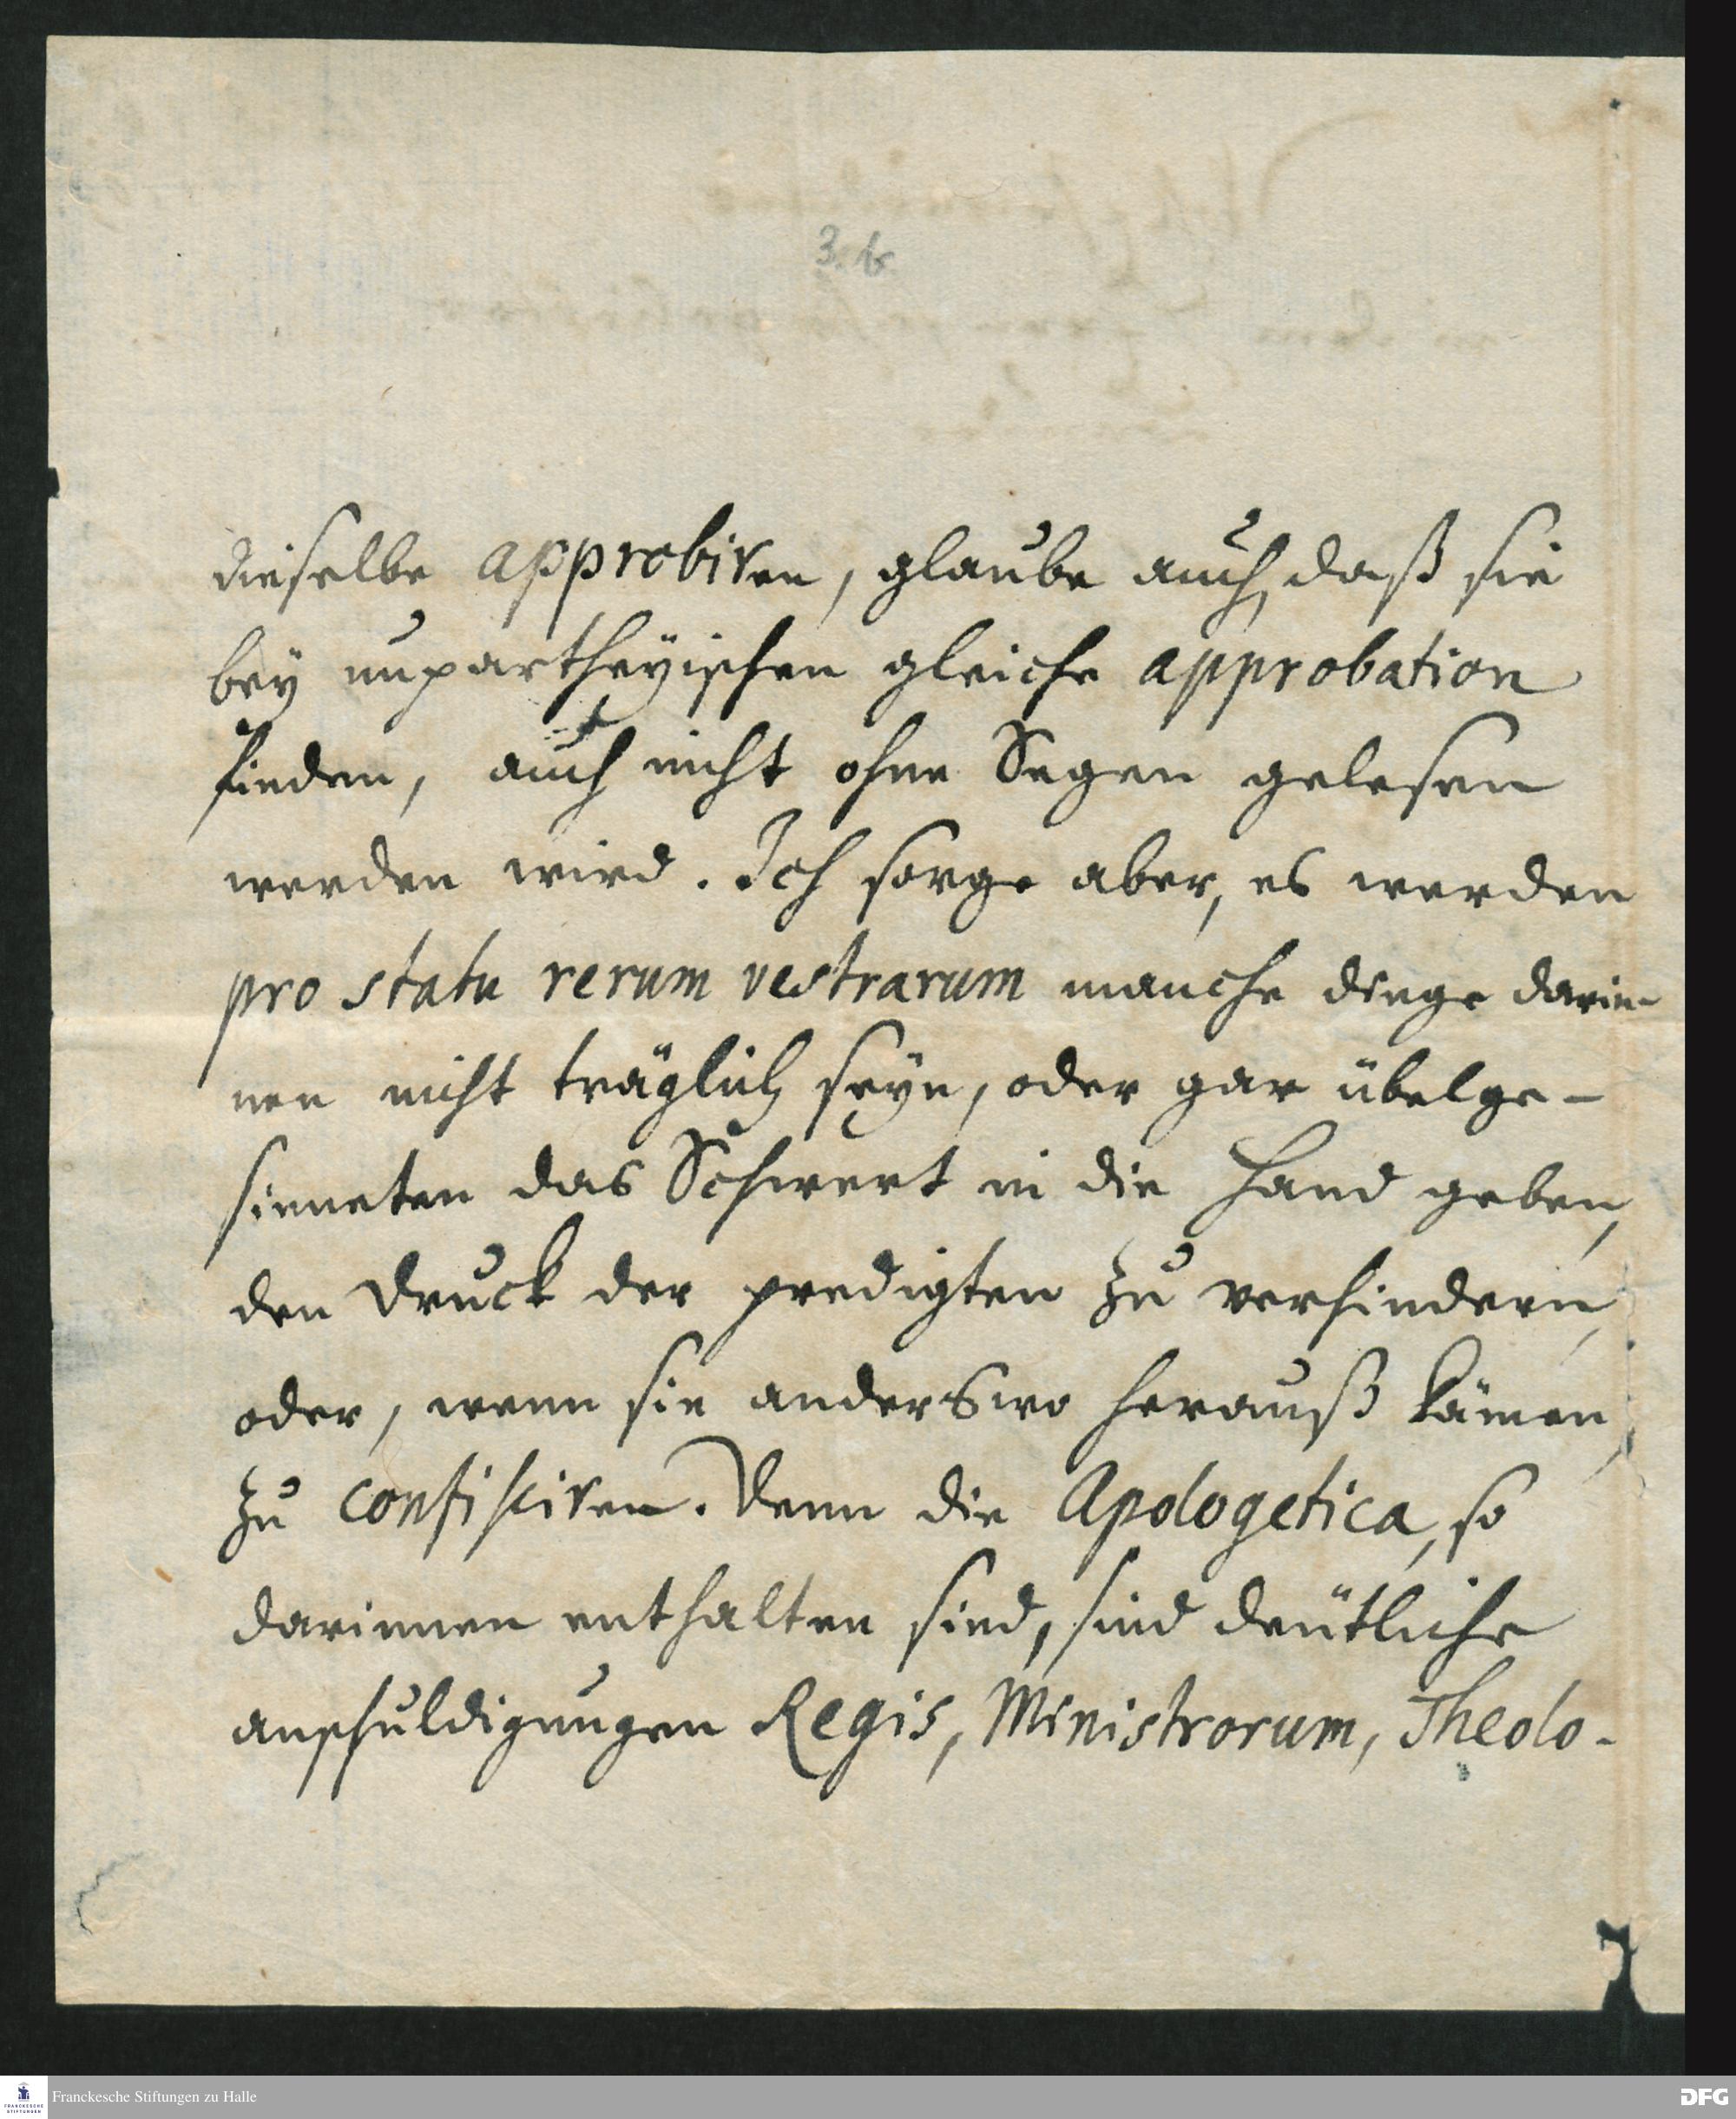 3. b
dieselbe approbiren, glaube auch, daß sie
bey unpartheyischen gleiche approbation
finden, auch nicht ohne Segen gelesen
werden wird. Ich sorge aber, es werden
pro statu rerum vestrarum manche dinge darin-
nen nicht träglich seyn, oder gar übelge-
sinneten das Schwert in die Hand geben,
den Druck der predigten zu verhindern,
oder, wenn sie anderswo herauß kämen,
zu confisciren. Denn die Apologetica, so
darinnen enthalten sind, sind deütliche
anschuldigungen Regis, Ministrorum, Theolo-
FRANCKESCHE STIFTUNGEN
Franckesche Stiftungen zu Halle
DFG